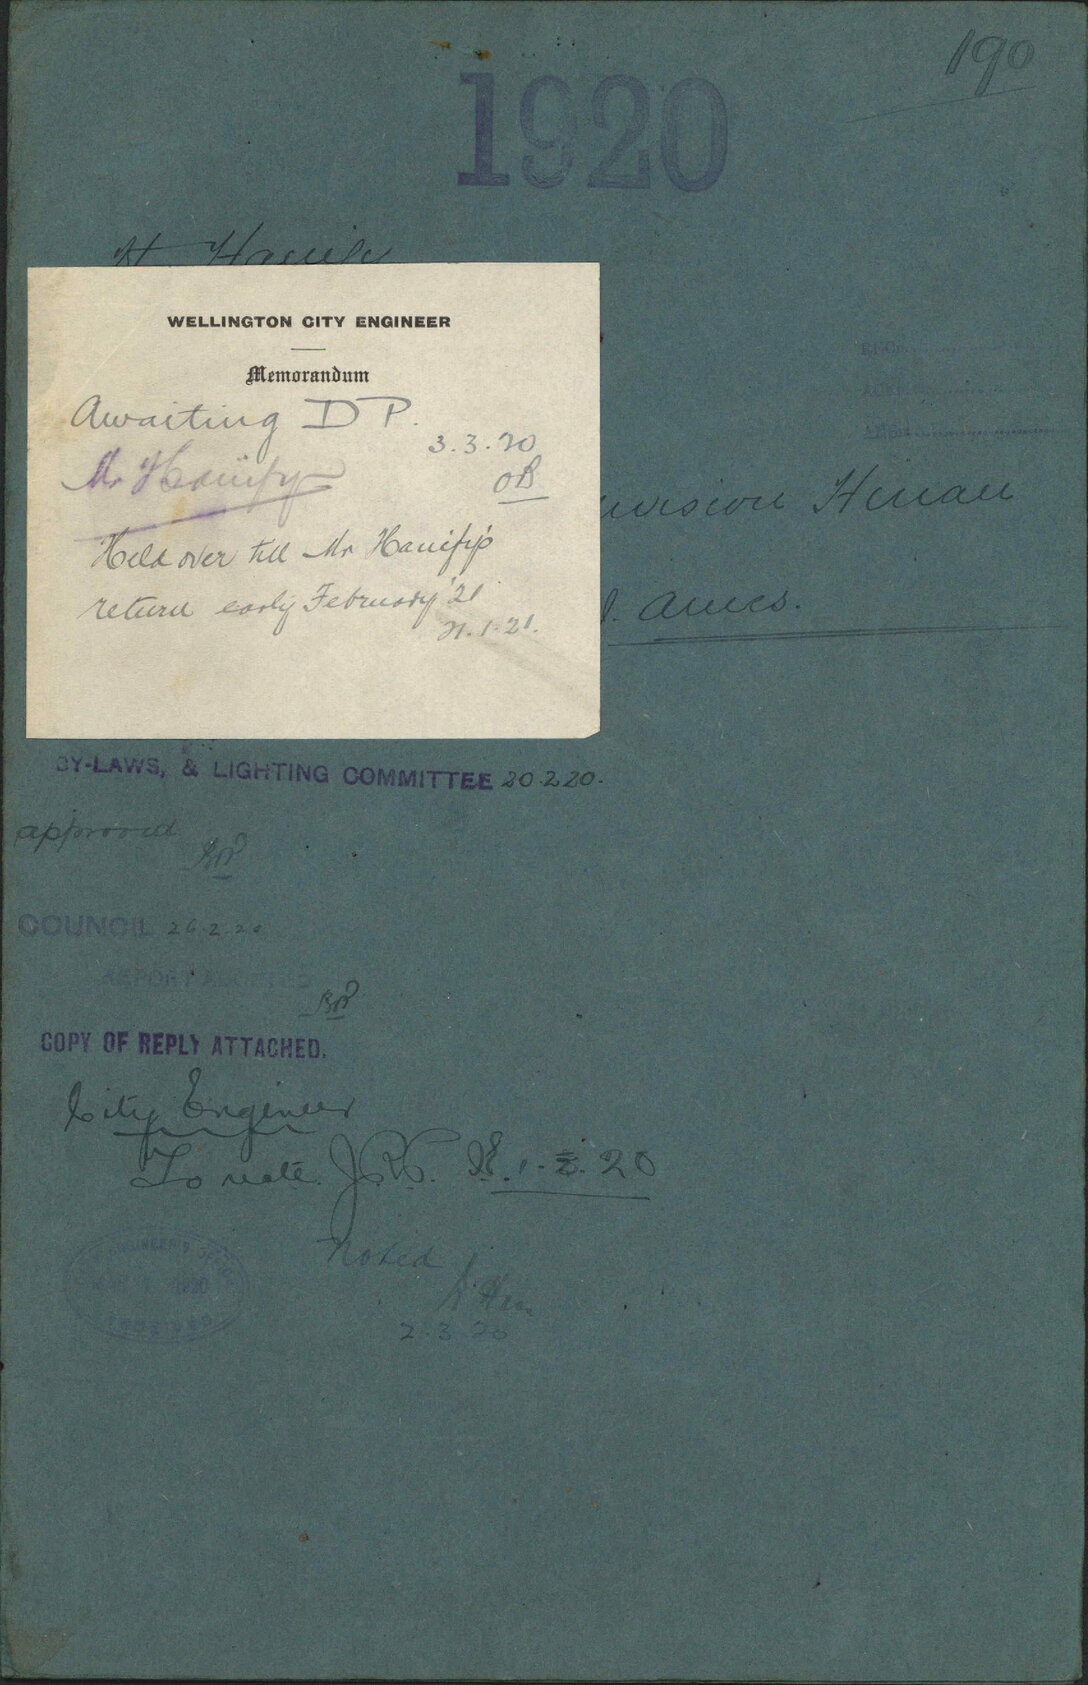 190
1920
H. Hanify
WELLINGTON CITY ENGINEER
Memorandum
Awaiting D P.
3.3.20
OB
Mr Hanify
Held over till Mr Hanify's
return early February '21
21.1.21.
Hinau
Ames.
BY-LAWS, & LIGHTING COMMITTEE 20.2.20.
approved
COUNCIL 26.2.20
REPORT ADOPTED
COPY OF REPLY ATTACHED.
City Engineer
To note. 20
Noted
2.3.20